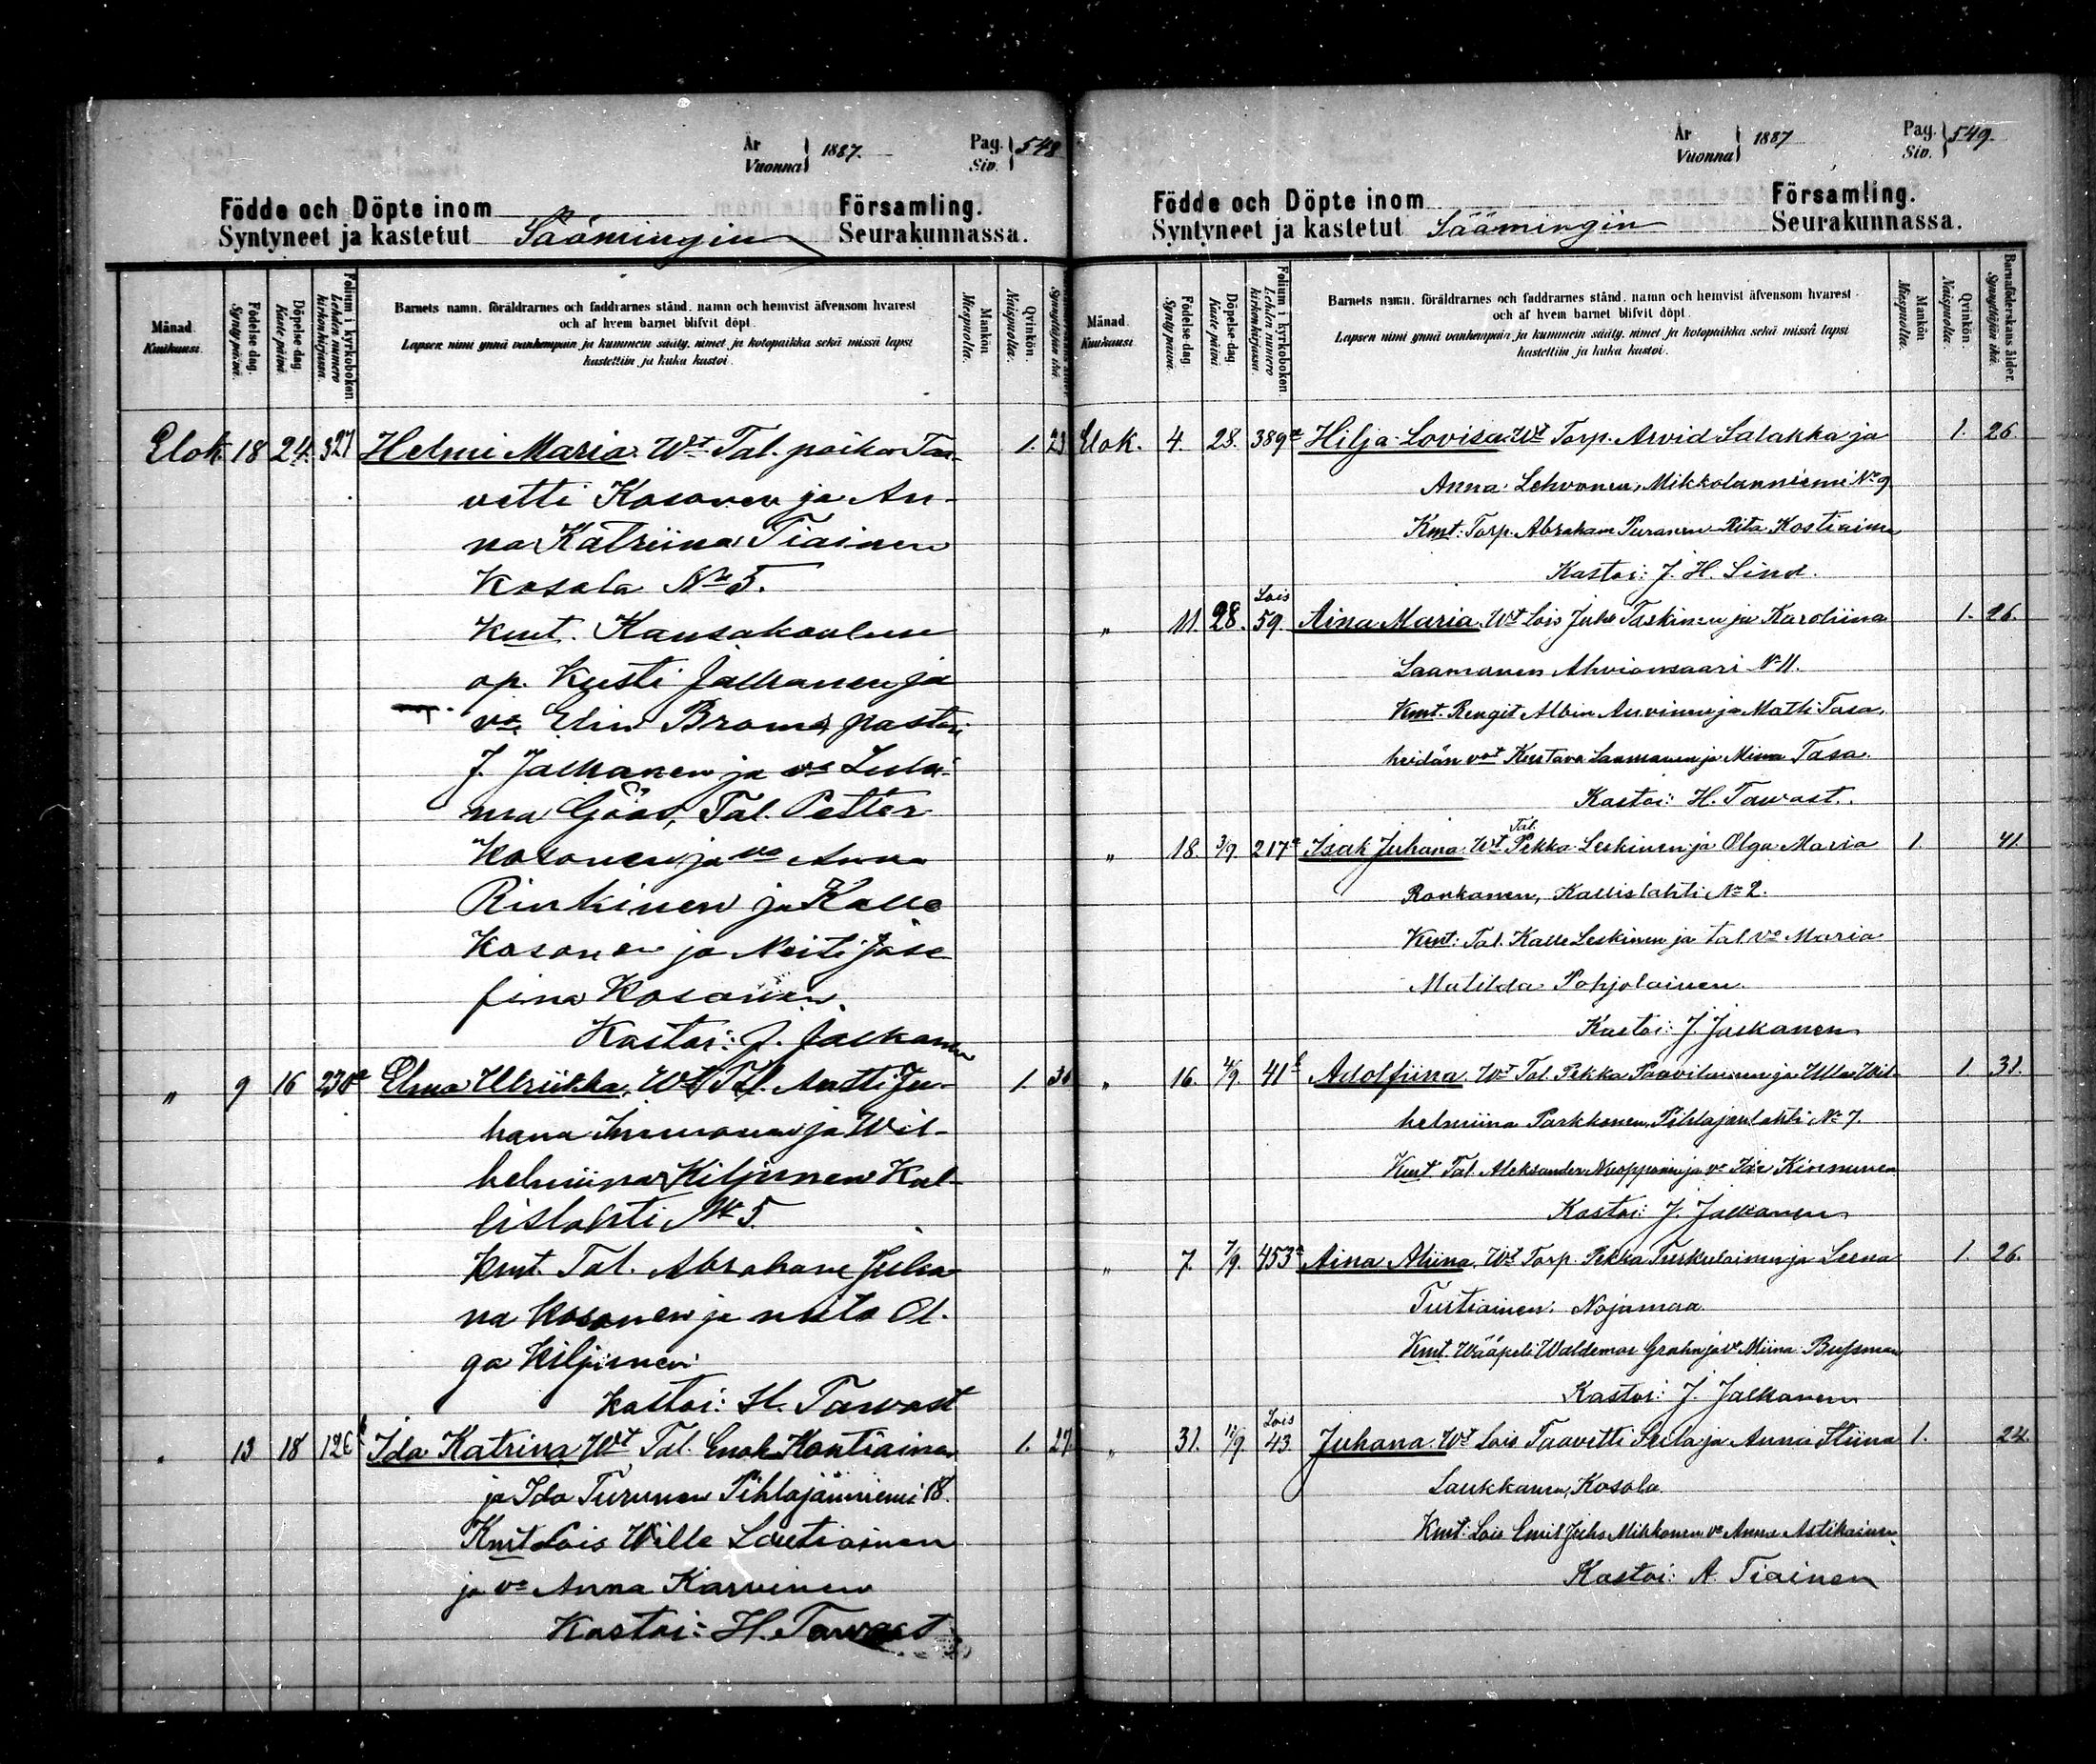 År
Vuonna } 1887.
Pag.
Siv. } 548
Födde och Döpte inom Församling.
Syntyneet ja kastetut Säämingin Seurakunnassa.
Månad. Kuukausi.
Födelse-dag. Synty päivä.
Döpelse-dag. Kaste päivä
Folium i kyrkoboken. Lehden numero kirkonkirjassa.
Barnets namn, föräldrarnes och faddrarnes stånd, namn och hemvist äfvensom hvarest
och af hvem barnet blifvit döpt.
Lapsen nimi ynnä vanhempain ja kummein sääty, nimet ja kotopaikka sekä missä lapsi
kastettiin ja kuka kastoi.
Mankön. Miespuolia.
Qvinkön. Naispuolia.
Synnyttäjän ikä.
Elok. 18 24. 327 Helmi Maria. Wt Tal. poika Taa- 1. 23
vetti Kosonen ja An-
na Katriina Tiainen
Kosola No 5.
Kmt. Kansakoulun
op. Kusti Jalkanen ja
va Elin Broms, pastori
J. Jalkanen ja va
Göös, Tal. Petter
Kosonen ja va Anna
Rinkinen ja Kalle
Kosonen ja Neiti Jose
fina Kosonen.
Kastoi: J. Jalkanen
" 9 16 230a Elma Ulriikka. Wt Tal. Antti Ju- 1. 30
hana Immonen ja Wil-
helmiina Kiljunen Kal-
lislahti No 5.
Kmt. Tal. Abraham Juha
na Kosonen ja neito Ol-
ga Kiljunen
Kastoi: H. Tawast
" 13 18 126b Ida Katrina Wt Tal. Enok Kontiainen 1. 27
ja Ida Turunen Pihlajaniemi 18.
Kmt Lois Wille Loutiainen
ja va Anna Karvinen
Kastoi: H. Tawast
År
Vuonna } 1887
Pag.
Siv. } 549.
Födde och Döpte inom Församling.
Syntyneet ja kastetut Säämingin Seurakunnassa.
Månad. Kuukausi.
Födelse-dag. Synty päivä.
Döpelse-dag. Kaste päivä
Folium i kyrkoboken. Lehden numero kirkonkirjassa.
Barnets namn, föräldrarnes och faddrarnes stånd, namn och hemvist äfvensom hvarest
och af hvem barnet blifvit döpt.
Lapsen nimi ynnä vanhempain ja kummein sääty, nimet ja kotopaikka sekä missä lapsi
kastettiin ja kuka kastoi.
Mankön. Miespuolia.
Qvinkön. Naispuolia.
Barnaföderskans ålder. Synnyttäjän ikä.
Elok. 4. 28. 389a Hilja Lovisa Wt Torp. Arvid Salakka ja 1. 26
Anna Lehvonen, Mikkolanniemi No 9
Kmt: Torp. Abraham Puranen Rita Kostiainen
Kastoi: J. H. Lind.
" 11. 28. Lois 59. Aina Maria. Wt Lois Juho Taskinen ja Karoliina 1. 26.
Laamanen Ahvionsaari No 11.
Kmt. Rengit Albin Auvinen ja Matti Tasa,
heidän vot Kustava Laamanen ja Miina Tasa.
Kastoi: H. Tawast.
" 18. 3/9. 217a Isak Juhana Wt Tal. Pekka Leskinen ja Olga Maria 1. 41.
Ronkanen, Kallislahti No 2.
Kmt: Tal. Kalle Leskinen ja tal. va Maria
Matilda Pohjolainen.
Kastoi: J. Jalkanen
" 16. 4/9. 41b Adolfiina Wt Tal. Pekka Paavilainen ja Ulla Wil- 1. 31.
helmiina Parkkonen, Pihlajanlahti No 7.
Kmt Tal. Aleksander Nuopponen ja va Ida Kinnunen
Kastoi: J. Jalkanen
" 7. 7/9. 453a Aina Aliina. Wt Torp. Pekka Turkulainen ja Leena 1. 26.
Turtiainen. Nojamaa
Kmt. Wääpeli Waldemar Grahn ja va Miina Bussman
Kastoi: J. Jalkanen
" 31. 11/9. Lois 43. Juhana Wt Lois Taavetti Seila ja Anna Stiina 1. 24.
Laukkanen, Kosola
Kmt: Lois Emil Juho Mikkonen va Anna Astikainen.
Kastoi: A. Tiainen